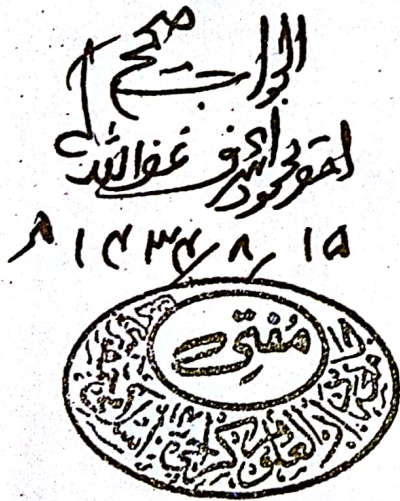 الجواب صحیح
احقر محمود اشرف غفر اللہ لہ
۱۵/۸/۱۴۳۴ھ
مفتی
جامعہ دارالعلوم کراچی